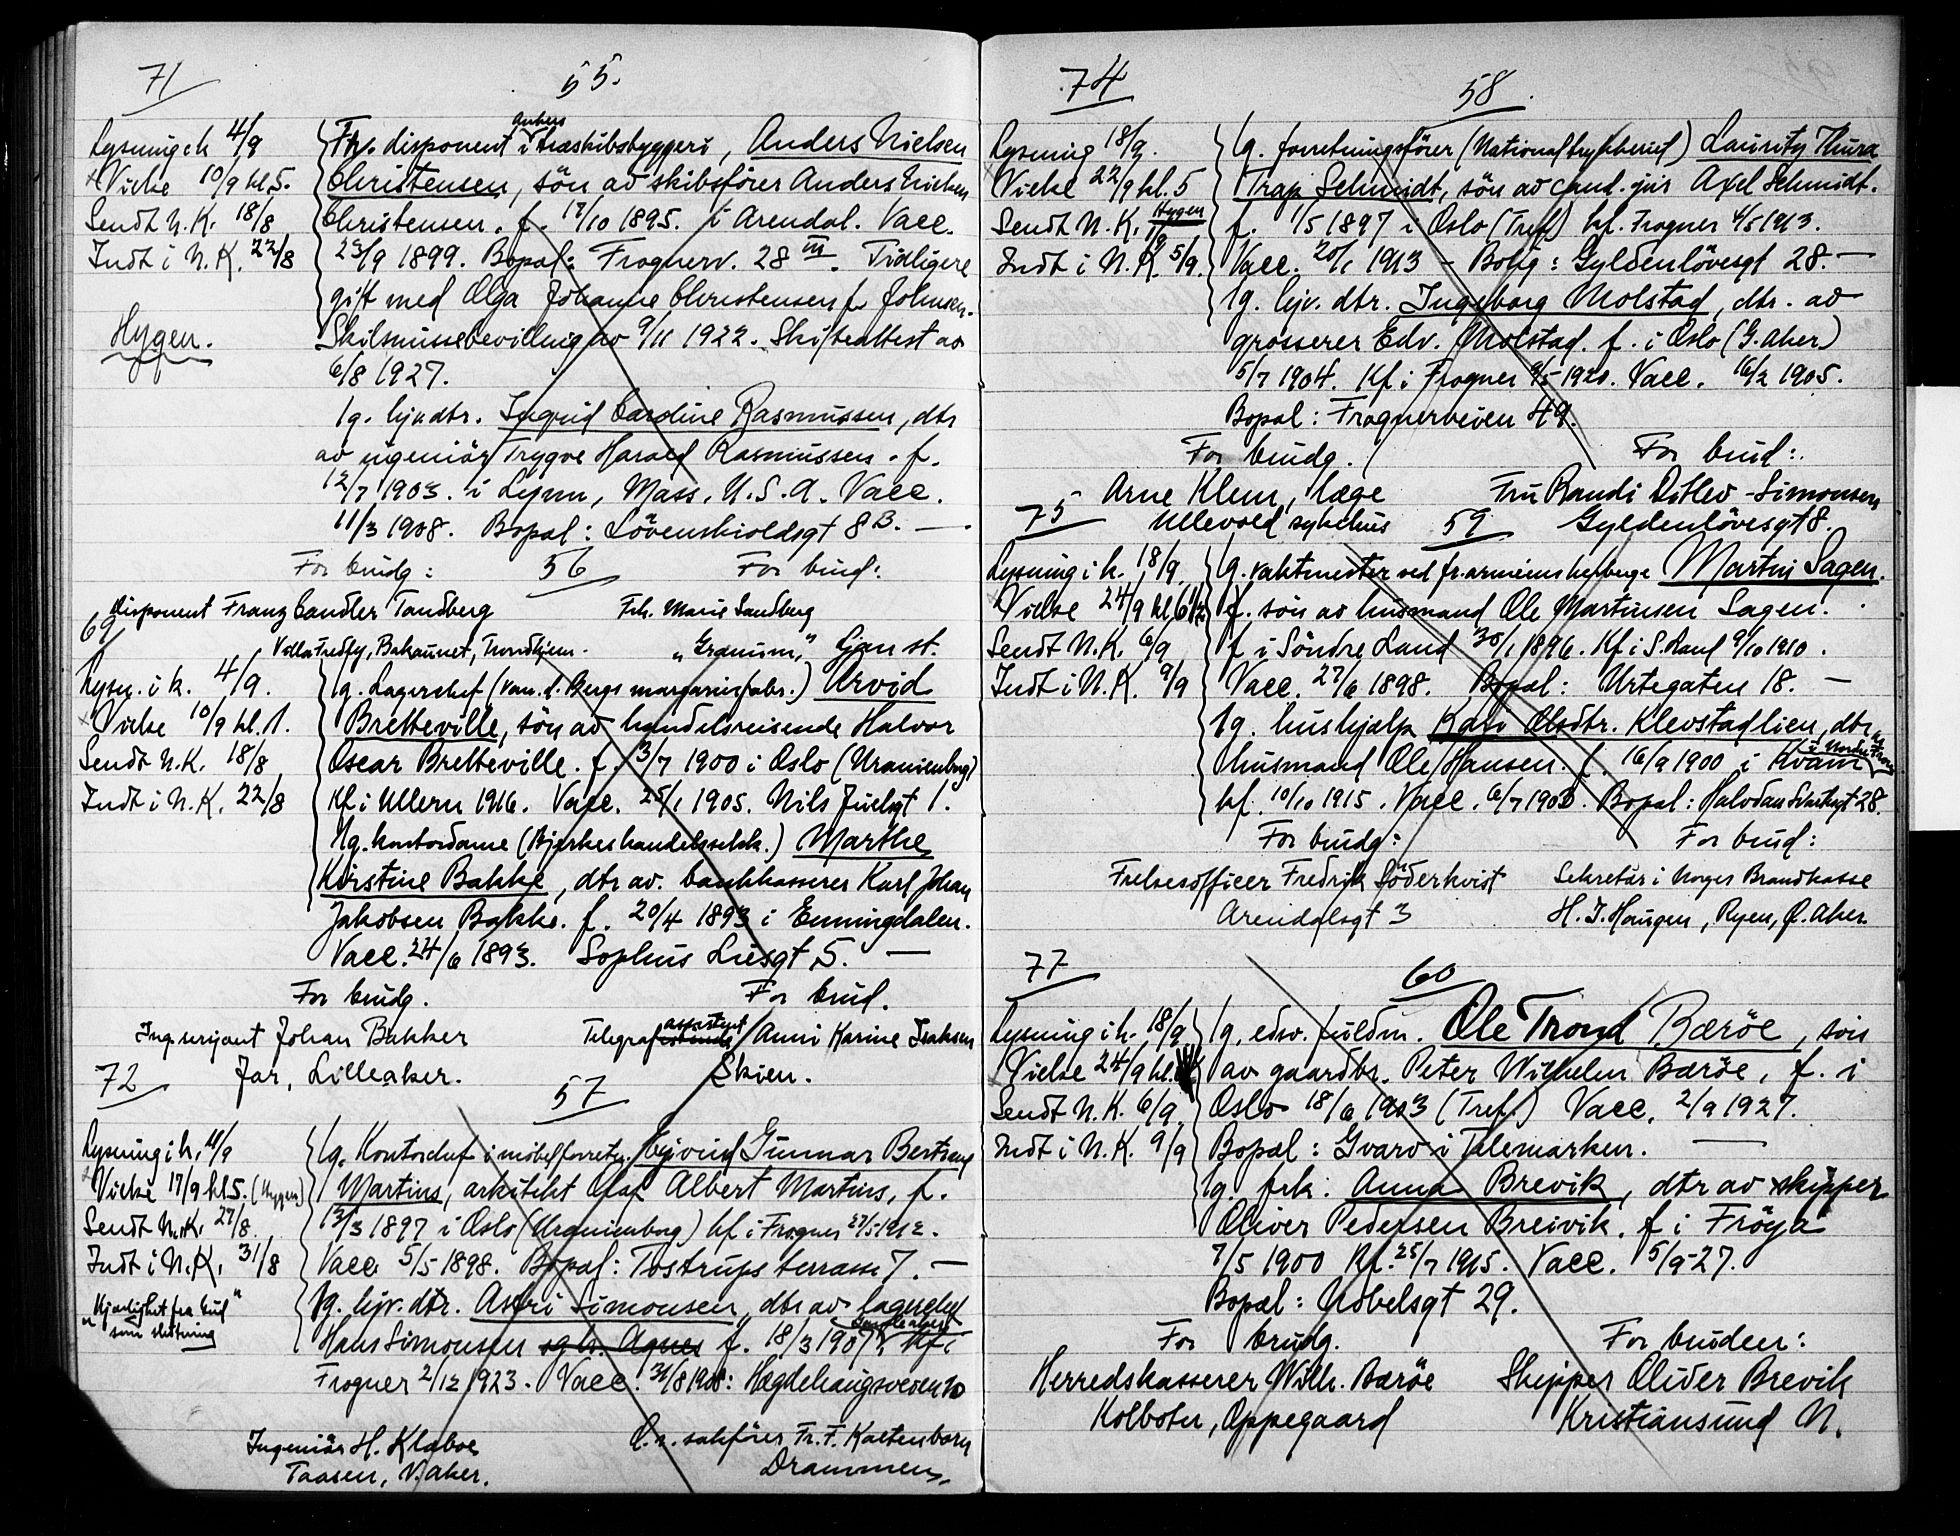 71
55.
Lysning i k 4/9
Vielse 10/9 kl. 5.
Sendt N.K. 18/8
Indt i N.K. 22/8
Hygen.
Ankers
Fhv. disponent i træskibsbyggeri, Anders Nielsen
Christensen, sön av skibsförer Anders Nielsen
Christensen. f. 17/10 1895. i Arendal. Vacc.
23/9 1899. Bopal: Frognerv. 28 III. Tidligere
gift med Olga Johanne Christensen f. Johnsen.
Skilsmissebevilling av 9/11 1922. Skifteattest av
6/8 1927.
Ug. hjv. dtr. Ingrid Caroline Rasmussen, dtr
av ingeniör Trygve Harald Rasmussen. f.
12/7 1903. i Lynn, Mass. U.S.A. Vacc.
11/3 1908. Bopal: Lövenskioldsgt 8 B. —
For brudg:
56
For brud:
Disponent Franz Candler Tandberg
Frk. Marie Sandberg
69
Villa Fredly, Bakaunet, Trondhjem.
"Granum", Ljan st.
Lysn. i k. 4/9.
Vielse 10/9 kl. 1.
Sendt N.K. 18/8
Indt i N.K. 22/8
Ug. Lagerchef (Vam. d. Bergs margarinfabr.) Arvid
Bretteville, sön av handelsreisende Halvor
Oscar Bretteville. f. 3/7 1900 i Oslo (Uranienborg)
Kf i Ullern 1916. Vacc. 25/1 1905. Nils Juelsgt 1.
Ug. kontordame (Bjerkes handelsselsk.) Marthe
Kirstine Bakke, dtr av. bankkasserer Karl Johan
Jakobsen Bakke. f. 20/4 1893 i Enningdalen.
Vacc. 24/6 1893. Sophus Liesgt 5. —
For brudg.
For brud.
Ing. serjant Johan Bakker
Telegrafassistent Anni Karine Isaksen
72
Jar, Lilleaker.
Skien.
57
Lysning i k. 4/9
Vielse 17/9 kl 5. (Hygen)
Sendt N.K. 27/8.
Indt i N.K. 31/8
"Kjærlighet fra Gud"
som slutning
Ug. Kontorchef i möbelforretn. Eyvind Gunnar Bertrand
Martins, arkitekt Olaf Albert Martins, f.
13/3 1897 i Oslo (Uranienborg) kf i Frogner 27/5 1912.
Vacc 5/5 1898. Bopal: Tostrups terrasse 7. —
Ug. hjv. dtr. Astri Simonsen, dtr av lagerchef
Hans Simonsen og h. Agnes f. 18/3 1907 Kf i
Frogner 2/12 1923. Vacc. 31/8 1908: Hægdehaugsveien 10
Ingeniör H. Klaboe
O.r. sakförer Fr. F. Kaltenborn
Taasen, V. Aker.
Drammen.
74
58
Lysning 18/9.
Vielse 22/9 kl. 5
Hygen
Sendt N.K. 1/9
Indt i N.K. 5/9.
Ug. forretningsförer (Nationaltrykkeriet) Lauritz Thura
Trap Schmidt, sön av cand. jur Axel Schmidt.
f. 1/5 1897 i Oslo (Tref) kf. Frogner 4/5 1913.
Vacc. 20/1 1913 – Bolig: Gyldenlövesgt 28. —
Ug. hjv. dtr. Ingeborg Molstad, dtr. av
grosserer Edv. Molstad. f. i Oslo (G. Aker)
5/7 1904. Kf i Frogner 9/5 1920. Vacc. 16/2 1905.
Bopal: Frognerveien 49.
For brudg.
For brud:
Arne Klem, læge
Fru Randi Ditlev-Simonsen
75
Ullevold sykehus
59
Gyldenlövesgt 8.
Lysning i k. 18/9.
Vielse 24/9 kl. 6 1/2
Sendt N.K. 6/9
Indt i N.K. 9/9
Ug. vaktmester ved fr. armeens herberge Martin Sagen.
f. sön av husmand Ole Martinsen Sagen.
f i Söndre Land 30/1 1896. Kf i S. Land 9/10 1910.
Vacc. 27/6 1898. Bopal: Urtegaten 18. —
Ug. hushjælp Kari Olsdtr. Klevstadlien, dtr av
husmand Ole Hansen. f. 16/9 1900 i Kvam i Nordre Fron
kf. 10/10 1915. Vacc. 6/7 1900. Bopal: Halvdan Svartesgt 28.
For brudg:
For brud:
Frelsesofficer Fredrik Söderkvist
Sekretær i Norges Brandkasse
Arendalsgt 3
H. J. Haugen, Ryen, Ö. Aker.
77
60
Lysning i k. 18/9
Vielse 24/9 kl.
Sendt N.K. 6/9
Indt i N.K. 9/9
Ug. edsv. fuldm. Ole Trond Bæröe, sön
av gaardbr. Peter Wilhelm Bæröe, f. i
Oslo 18/6 1903 (Tref.) Vacc. 2/9 1927.
Bopal: Gvarv i Telemarken. —
Ug. frk. Anna Brevik, dtr av skipper
Oliver Pedersen Breivik. f i Fröya
7/5 1900 Kf. 25/7 1915. Vacc. 5/9-27.
Bopæl: Nobelsgt 29.
For brudg.
For bruden:
Herredskasserer Wilh. Bæröe
Skipper Oliver Brevik
Kolboten, Oppegaard
Kristiansund N.